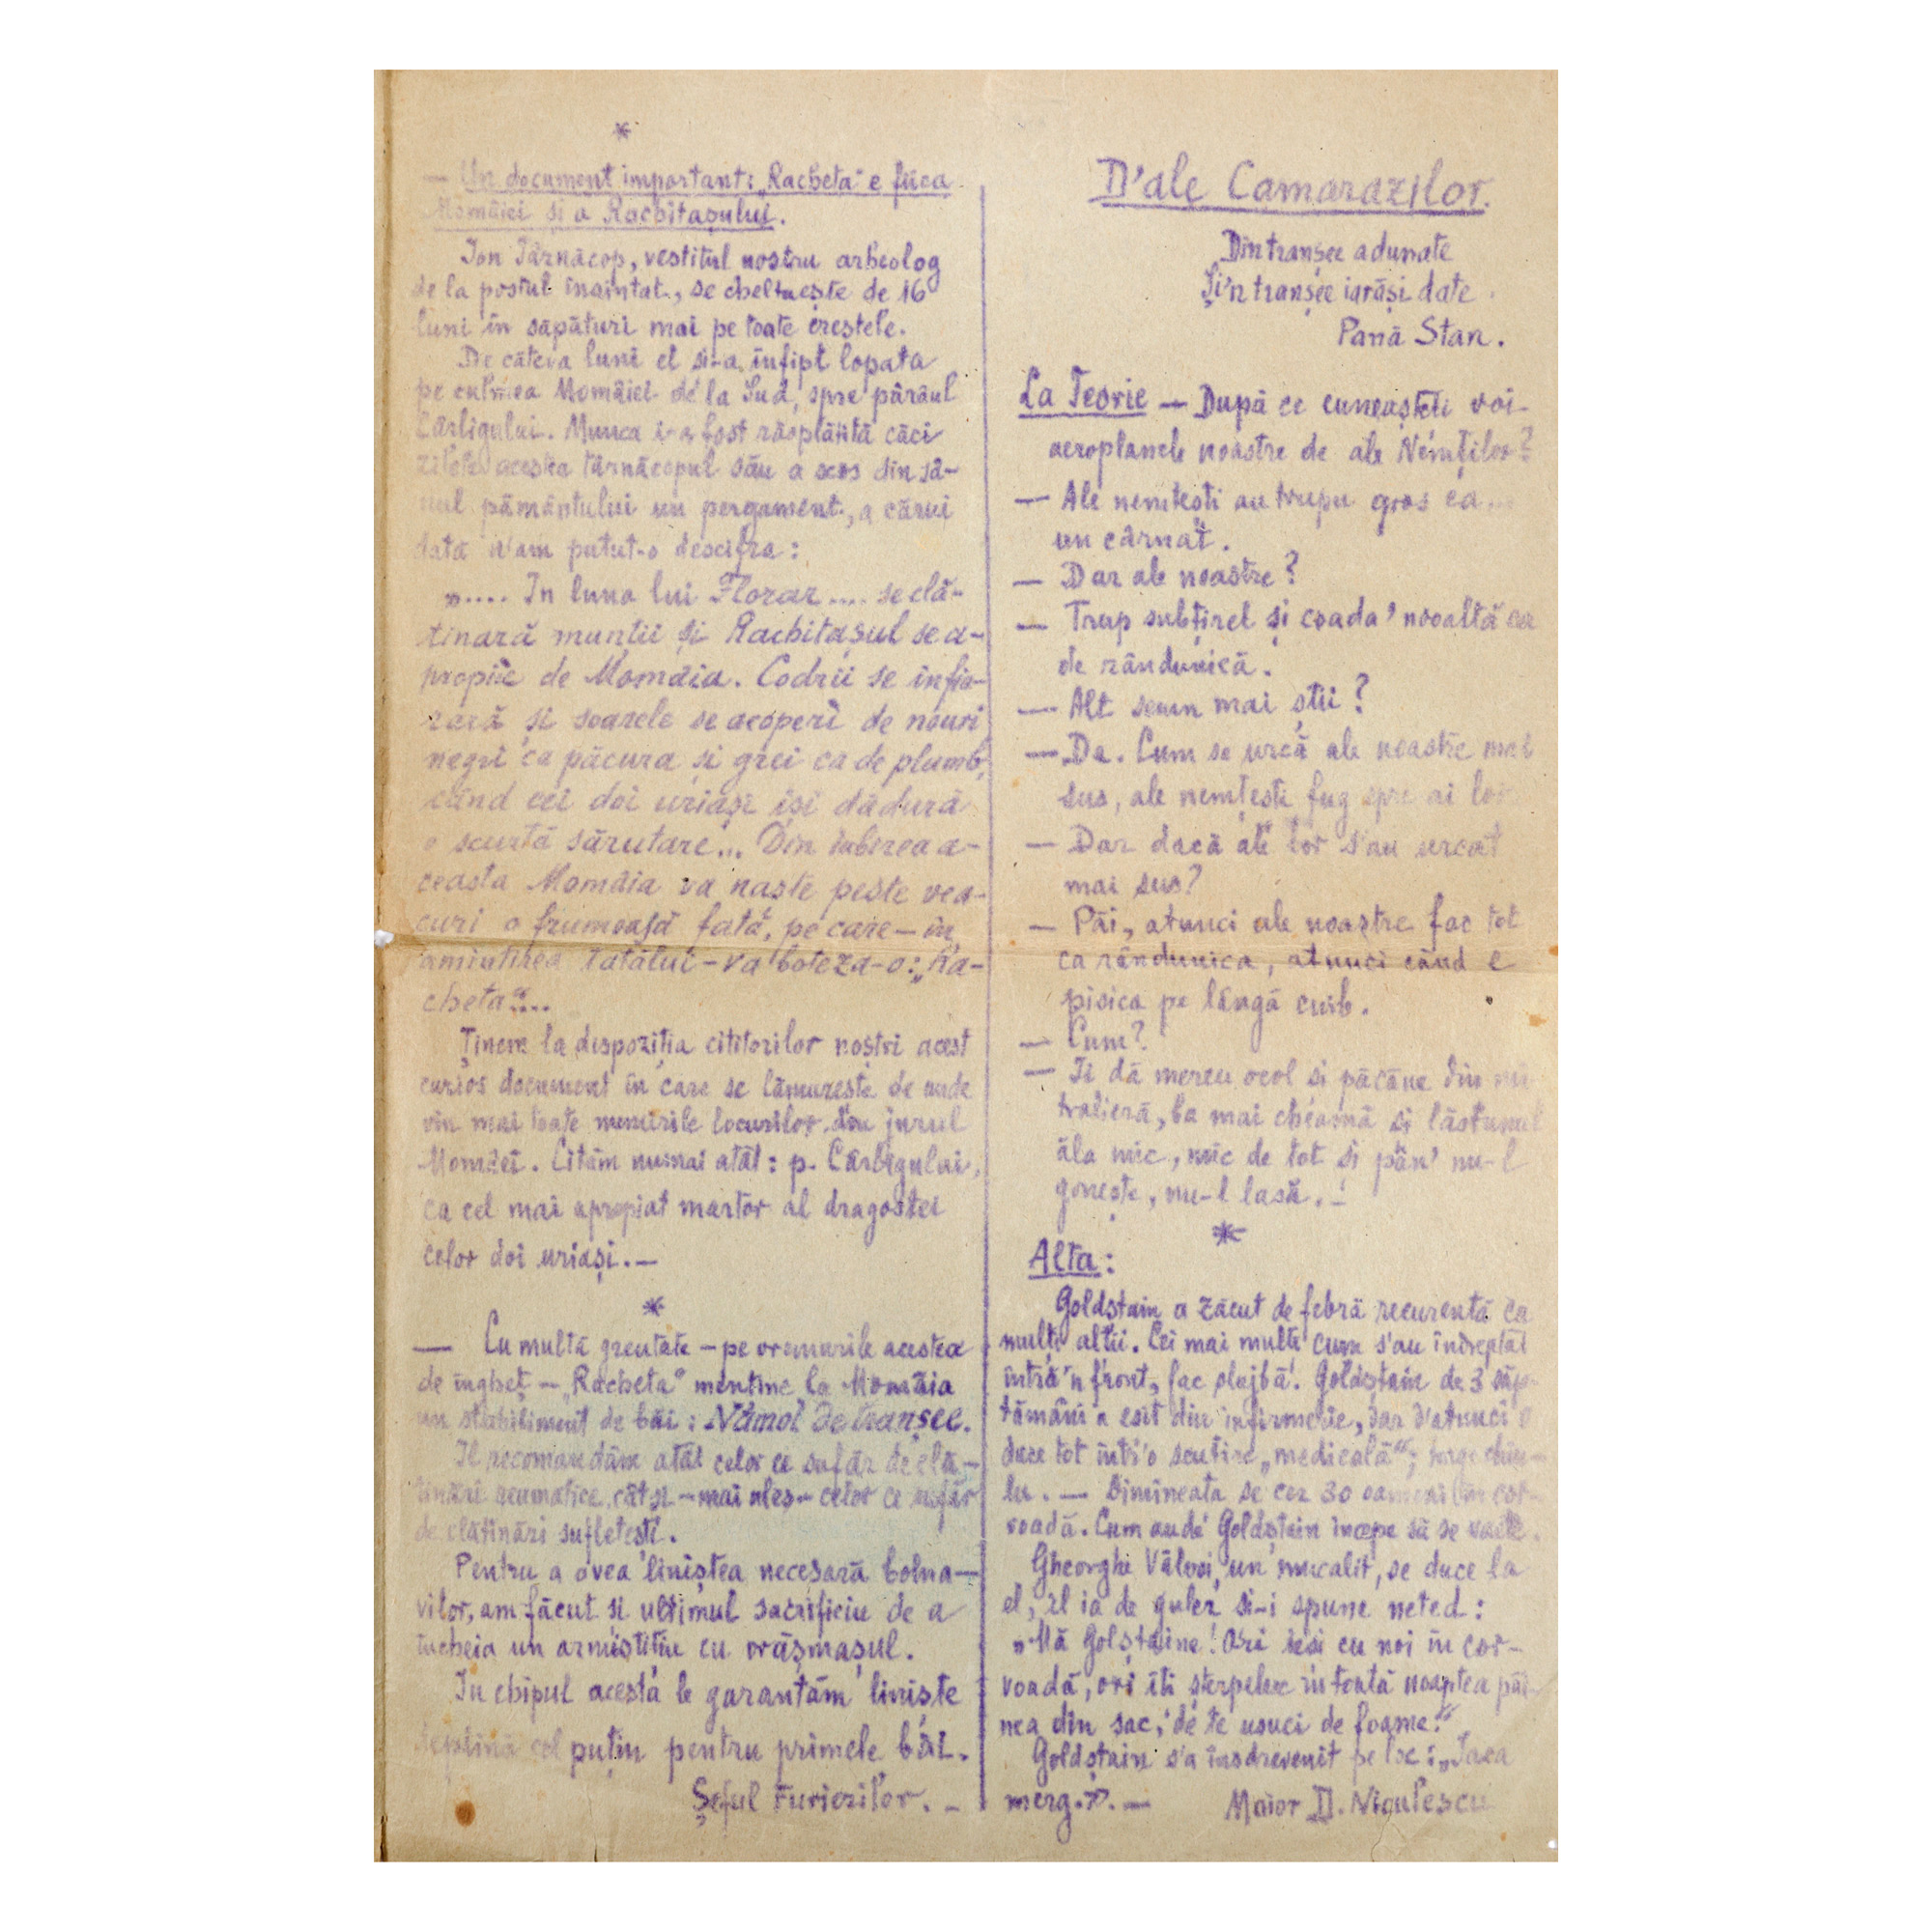 *
— Un document important: „Racheta" e fiica
Momâiei și a Rachitașului.
Ion Târnăcop, vestitul nostru arheolog
de la postul înaintat, se cheltuește de 16
luni în săpături mai pe toate crestele.
De câteva luni el și-a înfipt lopata
pe culmea Momâiei de la Sud, spre pârâul
Cârligului. Munca i-a fost răsplătită căci
zilele acestea târnăcopul său a scos din sâ-
nul pământului un pergament, a cărui
dată n'am putut-o descifra:
„.... In luna lui Florar .... se clă-
tinară munții și Rachitașul se a-
propiè de Momâia. Codrii se infio-
rară și soarele se acoperì de nouri
negri ca păcura și grei ca de plumb,
când cei doi uriași iși dădură
o scurtă sărutare... Din iubirea a-
ceasta Momâia va naște peste vea-
curi o frumoasă fată, pe care — în
amintirea tatălui — va boteza-o: „Ra-
cheta"...
Ținem la dispoziția cititorilor noștri acest
curios document în care se lămurește de unde
vin mai toate numirile locurilor din jurul
Momâiei. Cităm numai atât: p. Cârligului,
ca cel mai apropiat martor al dragostei
celor doi uriași. —
*
— Cu multă greutate — pe vremurile acestea
de îngheț — „Racheta" menține la Momâia
un stabiliment de băi: Nămol de tranșee.
Il recomandăm atât celor ce sufăr de clă-
tinări reumatice, cât și — mai ales — celor ce sufăr
de clătinări sufletești.
Pentru a avea liniștea necesară bolna-
vilor, am făcut și ultimul sacrificiu de a
încheia un armistițiu cu vrășmașul.
In chipul acesta le garantăm liniște
deplină cel puțin pentru primele băi.
Șeful Furierilor. —
D'ale Camarazilor.
Din tranșee adunate
Și'n tranșee iarăși date.
Pană Stan.
La Teorie — După ce cunoașteți voi
aeroplanele noastre de ale Nemților?
— Ale nemțești au trupu gros ca...
un cârnat.
— Dar ale noastre?
— Trup subțirel și coada'
de rândunică.
— Alt semn mai știi?
— Da. Cum se urcă ale noastre mai
sus, ale nemțești fug spre ai lor.
— Dar dacă ale lor s'au urcat
mai sus?
— Păi, atunci ale noastre fac tot
ca rândunica, atunci când e
pisica pe lângă cuib.
— Cum?
— Ii dă mereu ocol și păcăne din mi-
tralieră, ba mai cheamă și lăstunul
ăla mic, mic de tot și pân' nu-l
gonește, nu-l lasă. —
*
Alta:
Goldștain a zăcut de febră recurentă ca
mulți alții. Cei mai mulți cum s'au îndreptat
intră'n front, fac slujbă. Goldștain de 3 săp-
tămâni a eșit din infirmerie, dar d'atunci o
duce tot într'o scutire „medicală";
lu. — Dimineața se cer 30 oameni în cor-
voadă. Cum aude Goldștain începe să se vaete.
Gheorghe Vâlvoi, un mucalit, se duce la
el, îl ia de guler și-i spune neted:
„Mă Golștaine! Ori ieși cu noi în cor-
voadă, ori îți șterpelesc în toată noaptea pâi-
nea din sac, de te usuci de foame."
Goldștain s'a însdrevenit pe loc: „Iaca
merg." —
Maior D. Niculescu